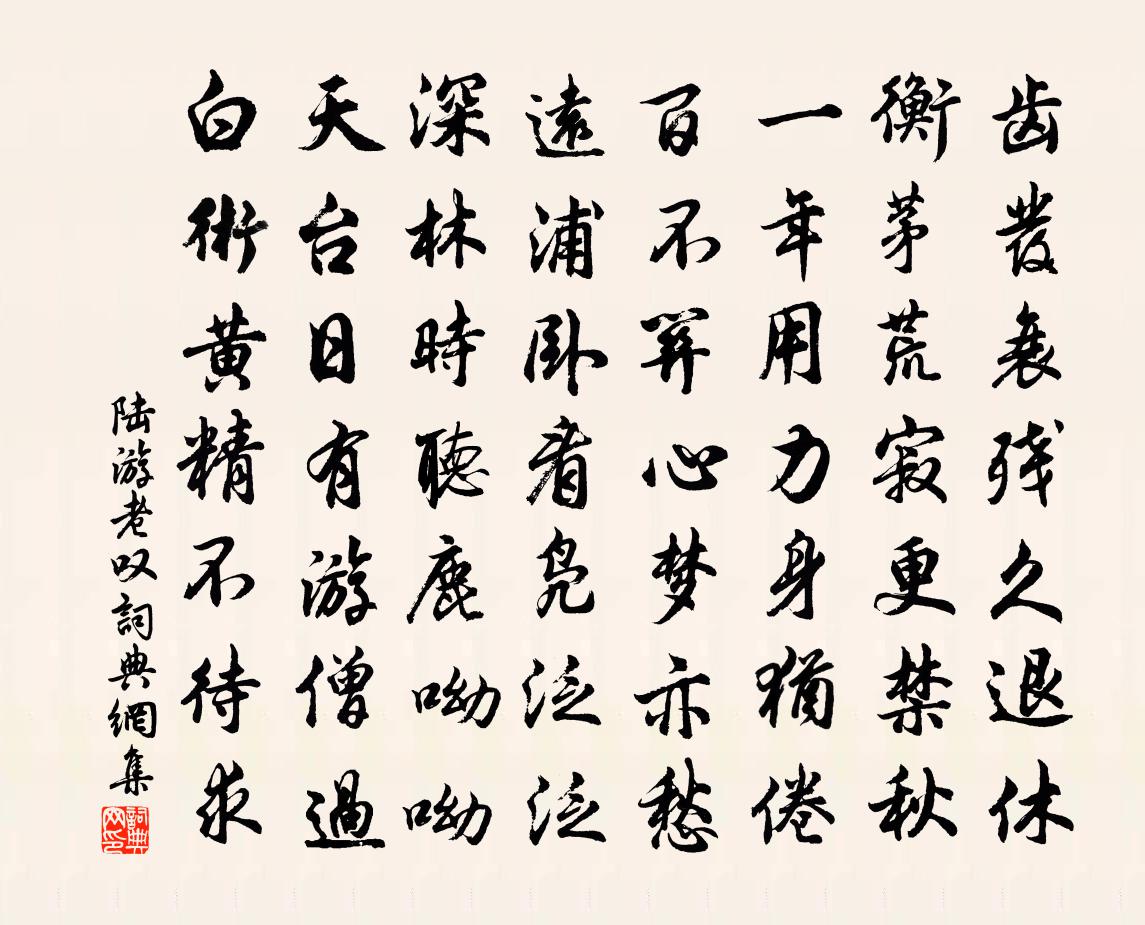 齿发衰残久退休
衡茅荒寂更禁秋
一年用力身犹倦
百不筭心梦亦愁
遠浦卧看凫泛泛
深林時聽鹿呦呦
天台日有游僧過
白術黄精不待求
陆游老叹詞典網集
詞典網印